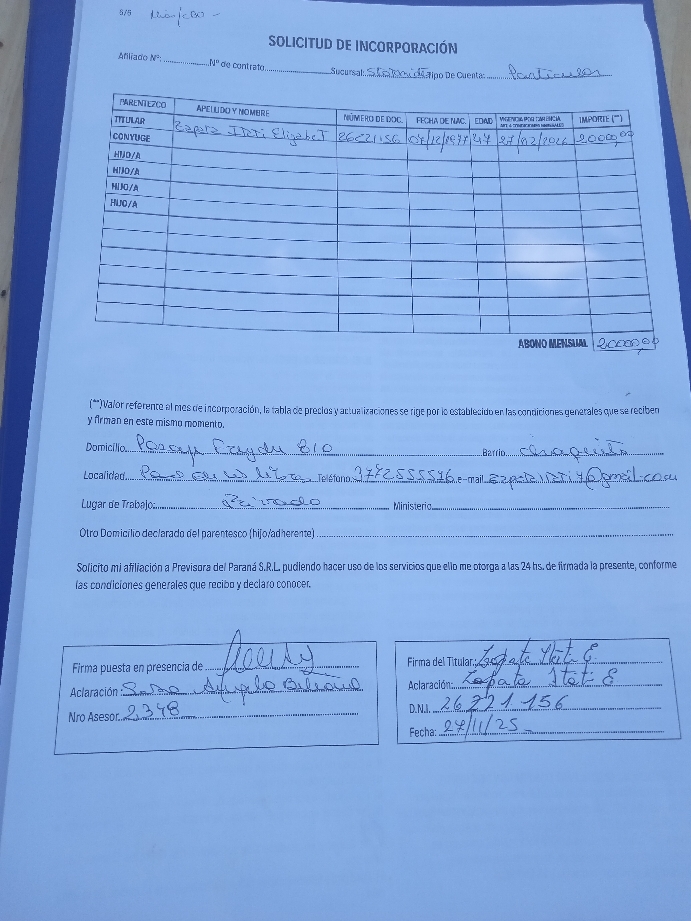 5/6
SOLICITUD DE INCORPORACIÓN
Afiliado Nº: Nº de contrato Sucursal: Tipo De Cuenta: Particular
PARENTEZCO APELLIDO Y NOMBRE NÚMERO DE DOC. FECHA DE NAC. EDAD VIGENCIA POR CARENCIA IMPORTE (**)
TITULAR Zapata ITATI Elizabet 26221156 07/12/1977 47 27/02/2026 20000,00
CONYUGE
HIJO/A
HIJO/A
HIJO/A
HIJO/A
ABONO MENSUAL 20000,00
(**)Valor referente al mes de incorporación, la tabla de precios y actualizaciones se rige por lo establecido en las condiciones generales que se reciben
y firman en este mismo momento.
Domicilio 810 Barrio
Localidad Paso de los libres Teléfono 3772555576 e-mail
Lugar de Trabajo Privado Ministerio
Otro Domicilio declarado del parentesco (hijo/adherente)
Solicito mi afiliación a Previsora del Paraná S.R.L. pudiendo hacer uso de los servicios que ello me otorga a las 24 hs. de firmada la presente, conforme
las condiciones generales que recibo y declaro conocer.
Firma puesta en presencia de
Aclaración:
Nro Asesor 2348
Firma del Titular: Zapata Itati E
Aclaración: Zapata Itati E
D.N.I. 26 221 156
Fecha: 27/11/25